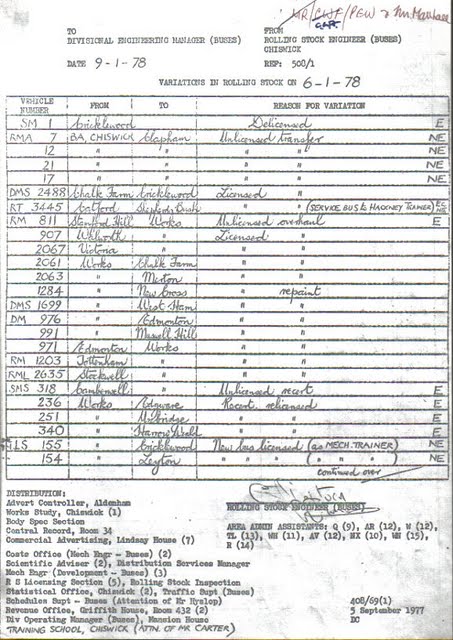 MR /CWF /PGW & Mr Maybee
TO FROM
DIVISIONAL ENGINEERING MANAGER (BUSES) ROLLING STOCK ENGINEER (BUSES)
CHISWICK
DATE 9-1-78 REF: 500/1
VARIATIONS IN ROLLING STOCK ON 6-1-78
VEHICLE NUMBER FROM TO REASON FOR VARIATION
SM 1 Cricklewood Delicensed E
RMA 7 BA, CHISWICK Clapham Unlicensed transfer NE
12 " " " " NE
21 " " " " NE
17 " " " " NE
DMS 2488 Chalk Farm Cricklewood Licensed "
RT 3445 Catford Shepherds Bush " " (SERVICE BUS to HACKNEY TRAINER)
RM 811 Stamford Hill Works Unlicensed overhaul E
907 Walworth " Licensed "
2067 Victoria " " "
2061 Works Chalk Farm " "
2063 " Merton " "
1284 " New Cross " repaint
DMS 1699 " West Ham " "
DM 976 " Edmonton " "
991 " Muswell Hill " "
971 Edmonton Works " "
RM 1203 Tottenham " " "
RML 2635 Stockwell " " "
SMS 318 Camberwell " Unlicensed recert E
236 Works Edgware Recert. relicensed E
251 " Uxbridge " " E
340 " Harrow Weald " " E
TLS 155 " Cricklewood New bus licensed (as MECH. TRAINER) NE
154 " Leyton " " " ( " " " ) NE
continued over
DISTRIBUTION:
Advert Controller, Aldenham
Works Study, Chiswick (1)
Body Spec Section
Central Record, Room 34
Commercial Advertising, Lindsay House (7)
Costs Office (Mech Engr - Buses) (2)
Scientific Adviser (2), Distribution Services Manager
Mech Engr (Development - Buses) (3)
R S Licensing Section (5), Rolling Stock Inspection
Statistical Office, Chiswick (2), Traffic Supt (Buses)
Schedules Supt - Buses (Attention of Mr Hyslop)
Revenue Office, Griffith House, Room 432 (2)
Div Operating Manager (Buses), Mansion House
TRAINING SCHOOL, CHISWICK (ATTN. OF MR CARTER)
ROLLING STOCK ENGINEER (BUSES)
AREA ADMIN ASSISTANTS: Q (9), AR (12), W (12),
TL (13), WH (11), AV (12), HX (10), WN (15),
R (14)
408/69(1)
5 September 1977
DC